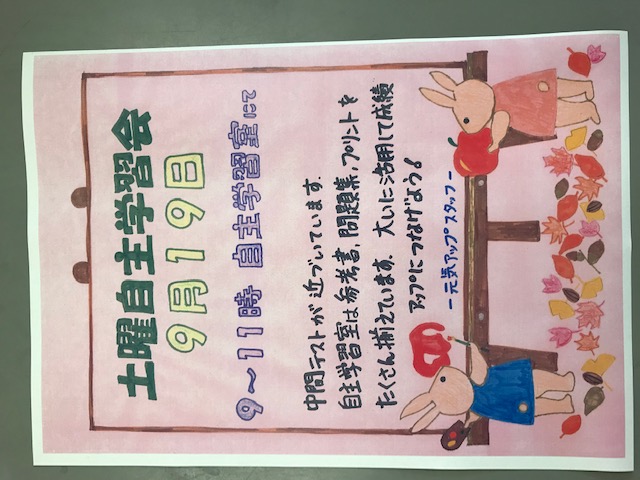 土曜自主学習会
9月19日
9～11時 自主学習室にて
中間テストが近づいています.
自主学習室は参考書,問題集,プリントを
たくさん揃えています. 大いに活用して成績
アップにつなげよう!
－元気アップスタッフ－